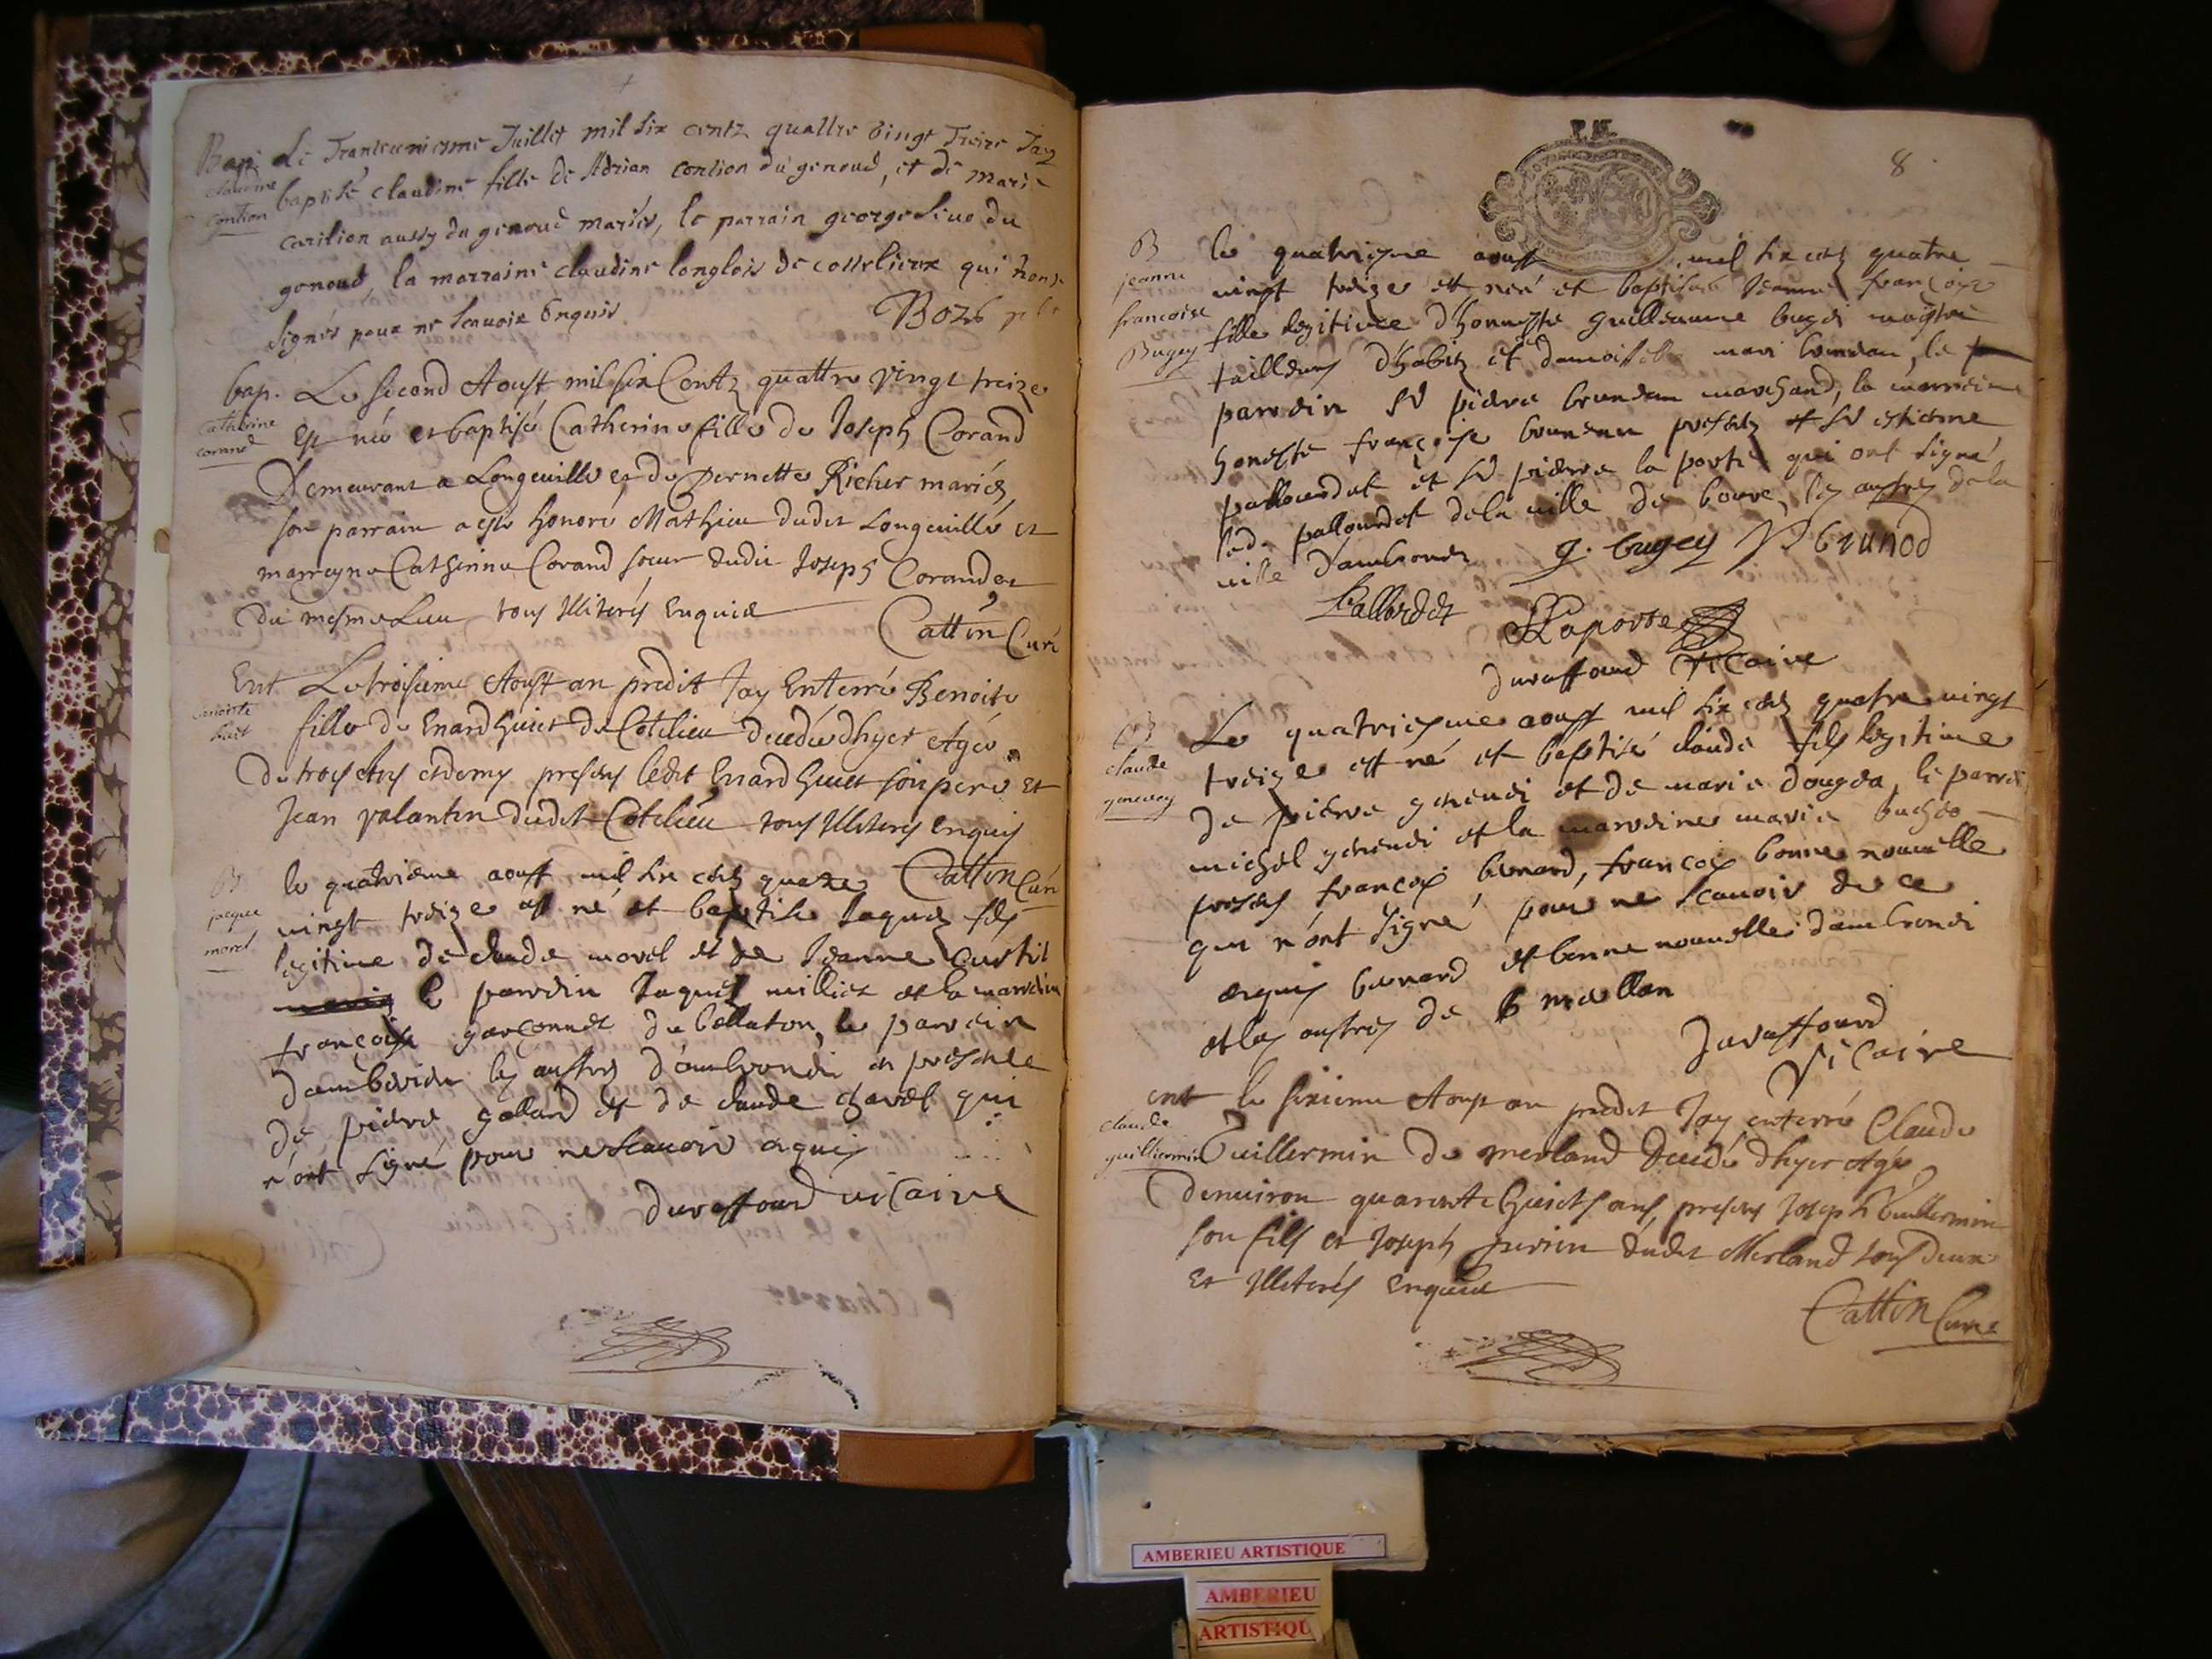 Bap. Le Tranteuniesme Juillet mil six centz quattre vingt Treize Jay
claudine contion
baptisé claudine fille de Adrian contion du genoud, et de marie
carilion aussy du genoud mariés, le parrain george du
genoud, la marraine claudine longlois de cottelieux qui
signés pour ne scavoir Enquis
Bozo
bap. Le second Aoust mil six Centz quattre vingt treize
catherine corand
Est née et baptisé Catherine fille de Joseph Corand
Demeurant a Longeville et de pernette Richer mariés,
son parrain a esté honoré Mathieu dudit Longeville et
marreyne Catherine Corand soeur dudit Joseph Corand et
du mesme Lieu tous Illiterés Enquis
Cattin Curé
Ent. Le troisieme Aoust an predit Jay Enterré Benoite
benoite huiet
fille de Enard huiet de Cotelieu decedée dhyer Agée
de trois Ans et demy presens ledit Enard huiet son pere et
Jean valantin dudit Cotelieu tous Illiterés enquis
Cattin Curé
B le quatrieme aoust mil six cens quatre
jaque morel
vingt treize est né et baptisé Jaques fils
legitime de claude morel et de Jeanne Curtil
le parrain Jaques milliet et la marraine
françoise garconnet du bellaton, le parrain
dambérieu les autres d'ambronai en presence
de pierre galland et de claude chavel qui
n'ont signé pour ne scavoir enquis
duraffourd vicaire
8
B le quatriesme aoust mil six cens quatre
jeanne francoise Bugey
vingt treize est neé et baptisée Jeanne françoise
fille legitime d'honneste guilleaume bugei maistre
tailleurs d'habits et damoiselle mari bruneau, le
parrain Sr pierre bruneau marchand, la marraine
honeste françoise bruneau presents Sr estienne
pallourdet et Sr pierre la porte qui ont signé
led. pallourdet de la ville de bourg, les autres de la
ville d'ambronai
g. bugey P brunod
Pallordet PLaporte
duraffourd vicaire
B
claude genevey
Le quatriesme aoust mil six cens quatre vingt
treize est né et baptisé claude fils legitime
de pierre genevei et de marie dougda, le parrai
michel genevei et la marraine marie
presens françois bernard, françois bonne nouvelle
qui n'ont signé pour ne scavoir de ce
enquis bernard et bonne nouvelle d'ambronai
et les autres de merllan
duraffourd
vicaire
ent le sixieme Aoust an predit Jay enterré Claude
claude guilliermin
Vuillermin de merland decedé dhyer Agé
denviron quarente huict ans, presens Joseph Vuillermin
son fils et Joseph perrin dudit Merland tous deux
Et Illiterés enquis
Cattin Curé
AMBERIEU ARTISTIQUE
AMBERIEU
ARTISTIQU